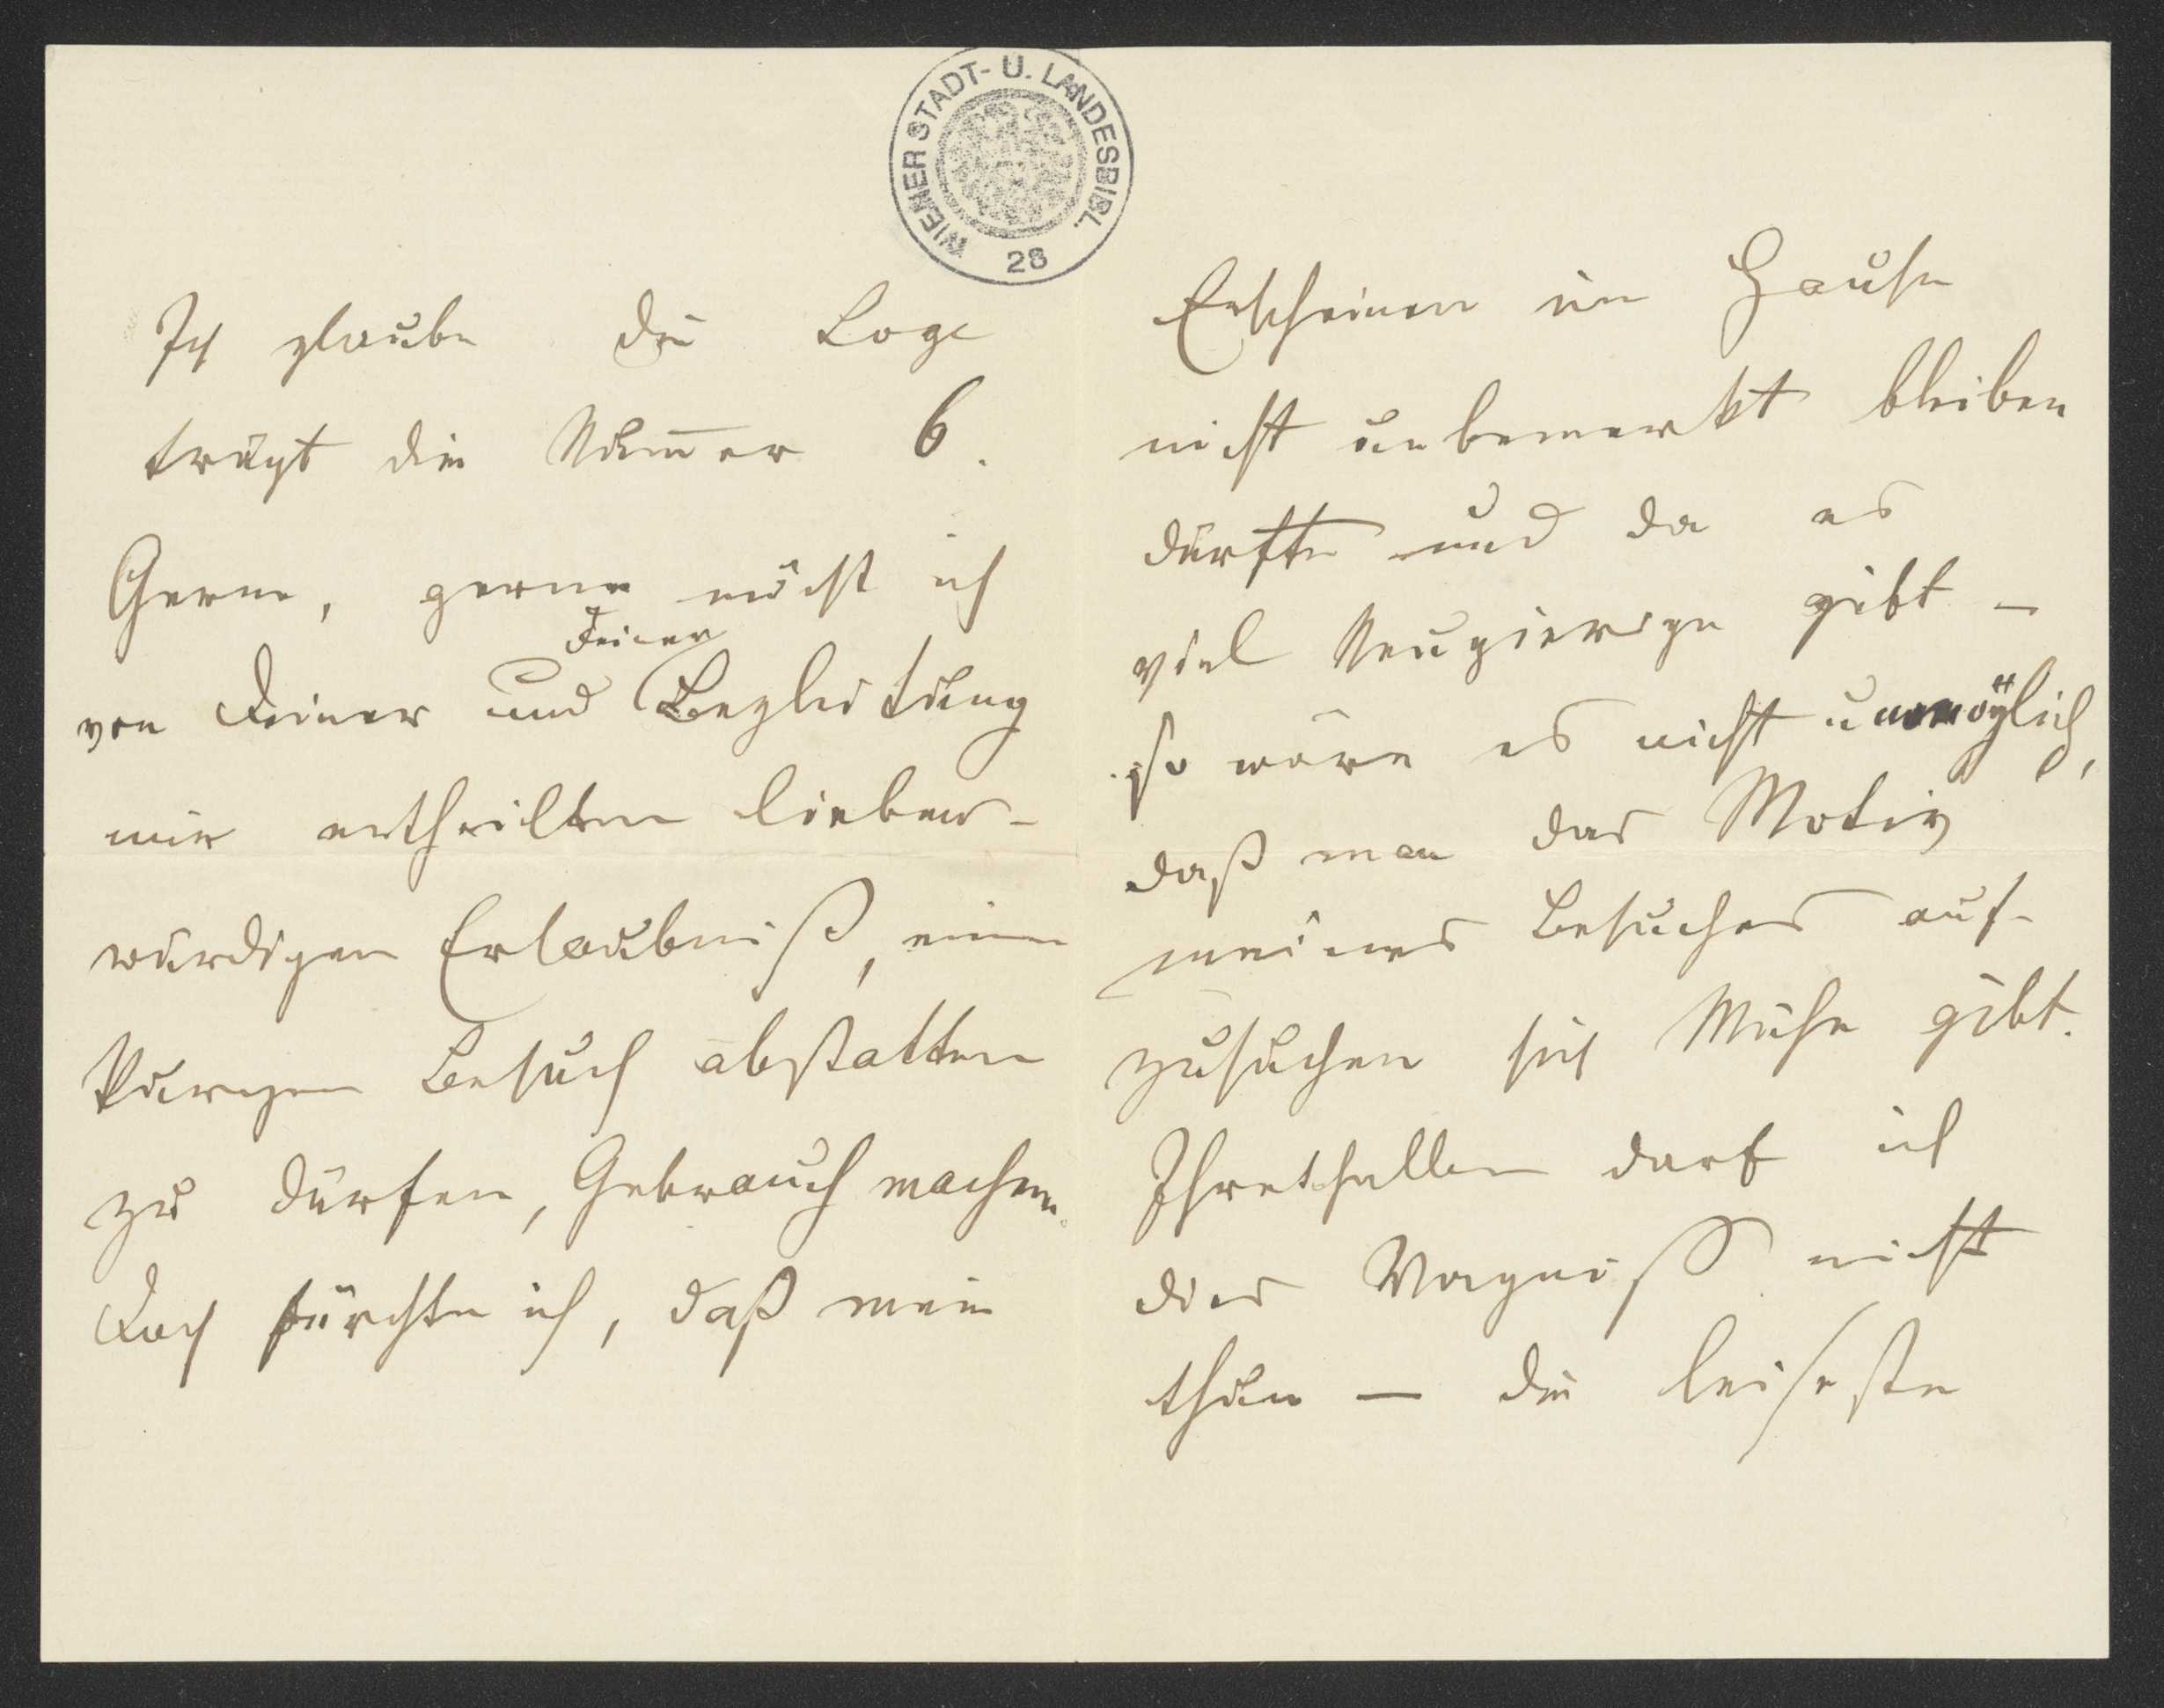 WIENER STADT- U. LANDESBIBL.
28
Ich glaube die Loge
trägt die Num̅er 6.
Gerne, gerne möcht ich
Deiner
von Deiner und Begleitung
mir ertheilten liebens-
würdigen Erlaubniß, einen
kurzen Besuch abstatten
zu dürfen, Gebrauch machen.
Doch fürchte ich, daß mein
Erscheinen im Hause
nicht unbemerkt bleiben
dürfte und da es
viel Neugierige gibt –
so wäre es nicht unmöglich,
daß man das Motiv
meines Besuches auf-
zusuchen sich Mühe gibt.
Ihrethalben darf ich
dies Wagniß nicht
thun – die leiseste